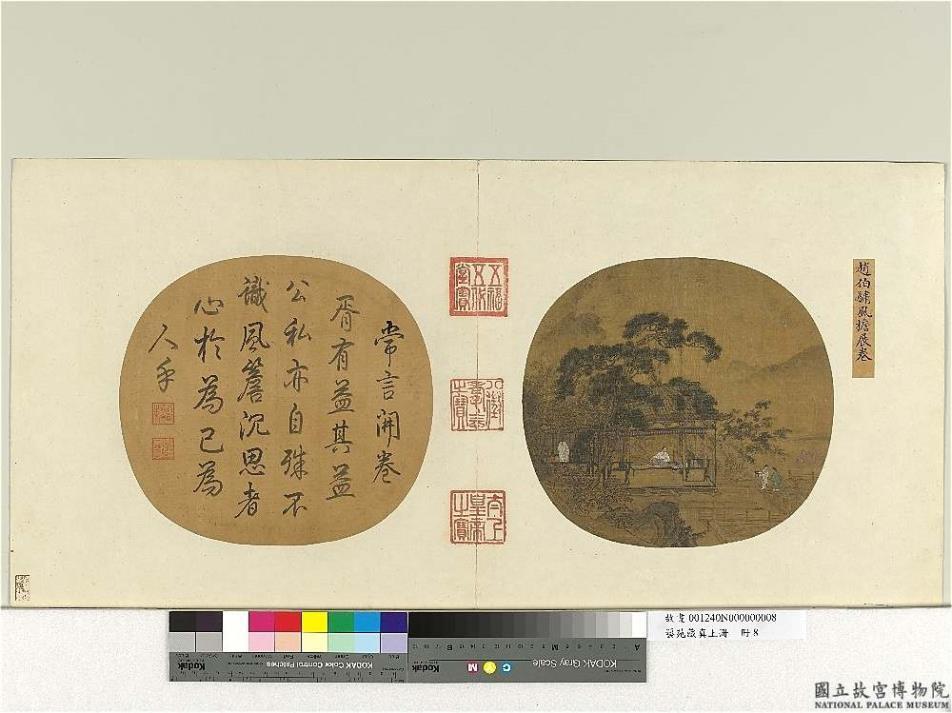 趙伯驌風檐展卷
五福
五代
堂寶
八徵
耄念
之寶
太上
皇帝
之寶
常言開卷
胥有益其益
公私亦自殊不
識風簷沉思者
心於為己為
人乎
KODAK Color Control Patches
Kodak
KODAK Gray Scale
Kodak
C
Y
M
A
M
B
故畫 001240N000000008
藝苑藏真上海 冊 8
國立故宮博物院
NATIONAL PALACE MUSEUM